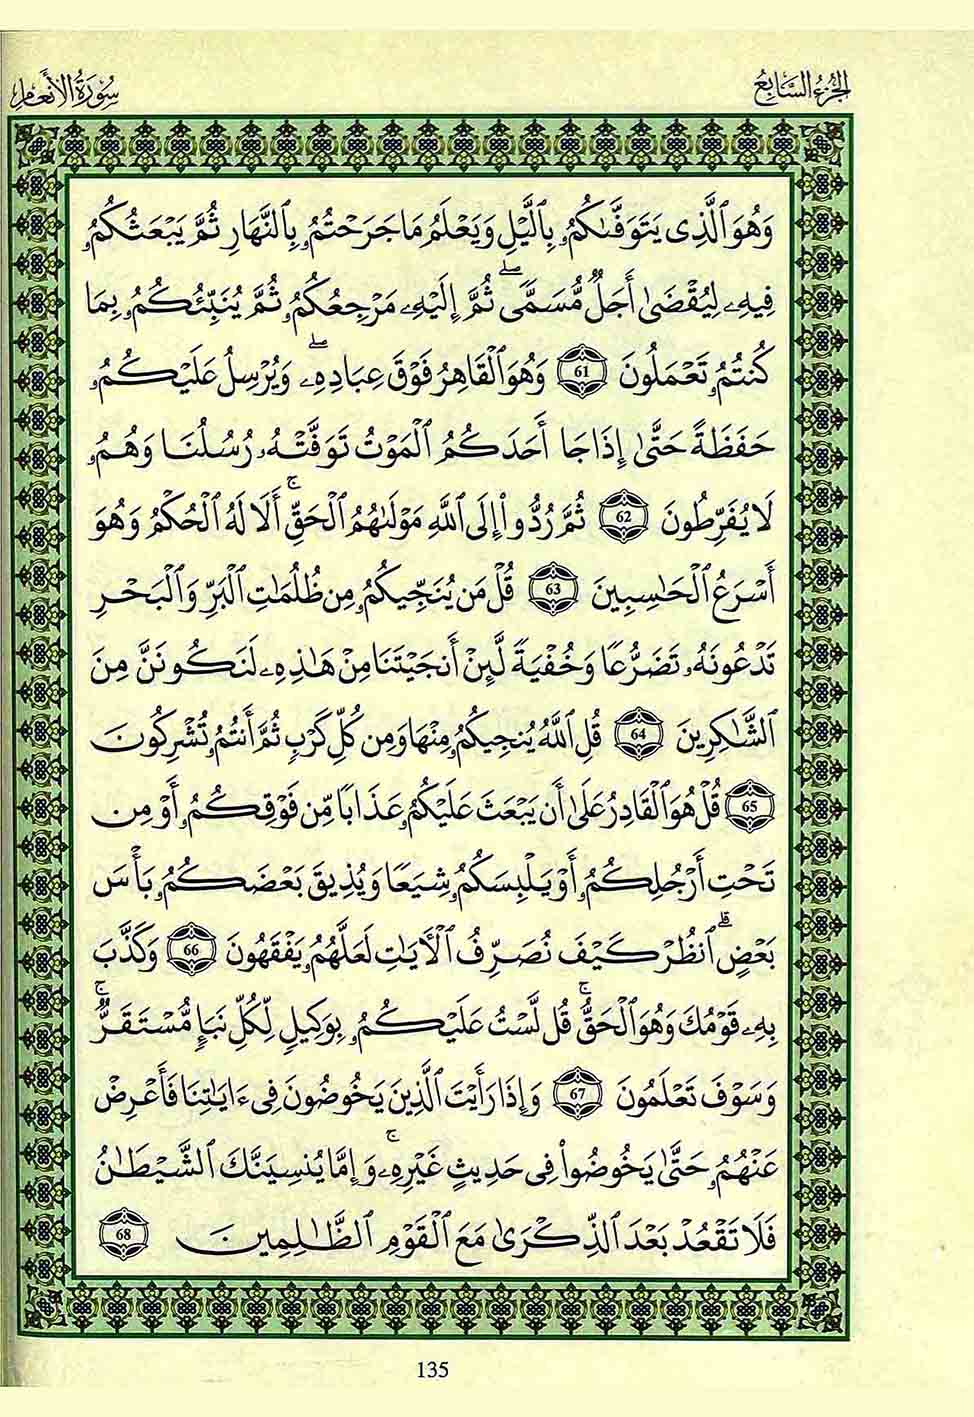 الجزء السابع
سورة الأنعام
وَهُوَ ٱلَّذِى يَتَوَفَّىٰكُمُۥ بِٱلَّيْلِ وَيَعْلَمُ مَا جَرَحْتُمُۥ بِٱلنَّهَارِ ثُمَّ يَبْعَثُكُمُۥ
فِيهِۦ لِيُقْضَىٰٓ أَجَلٌ مُّسَمًّى ۖ ثُمَّ إِلَيْهِۦ مَرْجِعُكُمُۥ ثُمَّ يُنَبِّئُكُمُۥ بِمَا
كُنتُمُۥ تَعْمَلُونَ 61 وَهُوَ ٱلْقَاهِرُ فَوْقَ عِبَادِهِۦ ۖ وَيُرْسِلُ عَلَيْكُمُۥ
حَفَظَةً حَتَّىٰ إِذَا جَا أَحَدَكُمُ ٱلْمَوْتُ تَوَفَّتْهُۥ رُسُلُنَا وَهُمُۥ
لَا يُفَرِّطُونَ 62 ثُمَّ رُدُّوٓا۟ إِلَى ٱللَّهِ مَوْلَىٰهُمُ ٱلْحَقِّ ۚ أَلَا لَهُ ٱلْحُكْمُ وَهُوَ
أَسْرَعُ ٱلْحَـٰسِبِينَ 63 قُلْ مَن يُنَجِّيكُمُۥ مِن ظُلُمَـٰتِ ٱلْبَرِّ وَٱلْبَحْرِ
تَدْعُونَهُۥ تَضَرُّعًا وَخُفْيَةً لَّئِنْ أَنجَيْتَنَا مِنْ هَـٰذِهِۦ لَنَكُونَنَّ مِنَ
ٱلشَّـٰكِرِينَ 64 قُلِ ٱللَّهُ يُنجِيكُمُۥ مِنْهَا وَمِن كُلِّ كَرْبٍ ثُمَّ أَنتُمُۥ تُشْرِكُونَ
65 قُلْ هُوَ ٱلْقَادِرُ عَلَىٰ أَن يَبْعَثَ عَلَيْكُمُۥ عَذَابًا مِّن فَوْقِكُمُۥ أَوْ مِن
تَحْتِ أَرْجُلِكُمُۥ أَوْ يَلْبِسَكُمُۥ شِيَعًا وَيُذِيقَ بَعْضَكُمُۥ بَأْسَ
بَعْضٍ ۗ ٱنظُرْ كَيْفَ نُصَرِّفُ ٱلْأَيَـٰتِ لَعَلَّهُمُۥ يَفْقَهُونَ 66 وَكَذَّبَ
بِهِۦ قَوْمُكَ وَهُوَ ٱلْحَقُّ ۚ قُل لَّسْتُ عَلَيْكُمُۥ بِوَكِيلٍ لِّكُلِّ نَبَإٍ مُّسْتَقَرٌّ ۚ
وَسَوْفَ تَعْلَمُونَ 67 وَإِذَا رَأَيْتَ ٱلَّذِينَ يَخُوضُونَ فِىٓ ءَايَـٰتِنَا فَأَعْرِضْ
عَنْهُمُۥ حَتَّىٰ يَخُوضُوا۟ فِى حَدِيثٍ غَيْرِهِۦ ۚ وَإِمَّا يُنسِيَنَّكَ ٱلشَّيْطَـٰنُ
فَلَا تَقْعُدْ بَعْدَ ٱلذِّكْرَىٰ مَعَ ٱلْقَوْمِ ٱلظَّـٰلِمِينَ 68
135